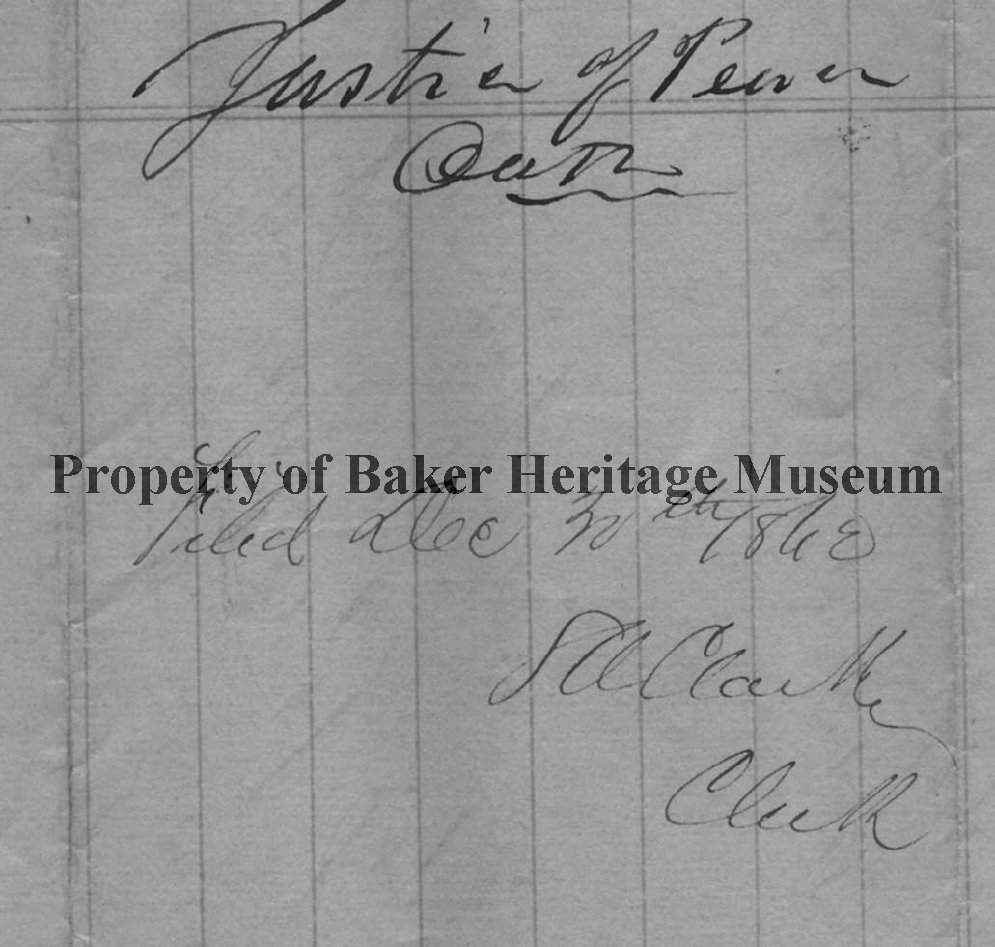 Justice of Peace
Oath
Property of Baker Heritage Museum
Filed Dec 30th 1862
S A Clarke
Clerk